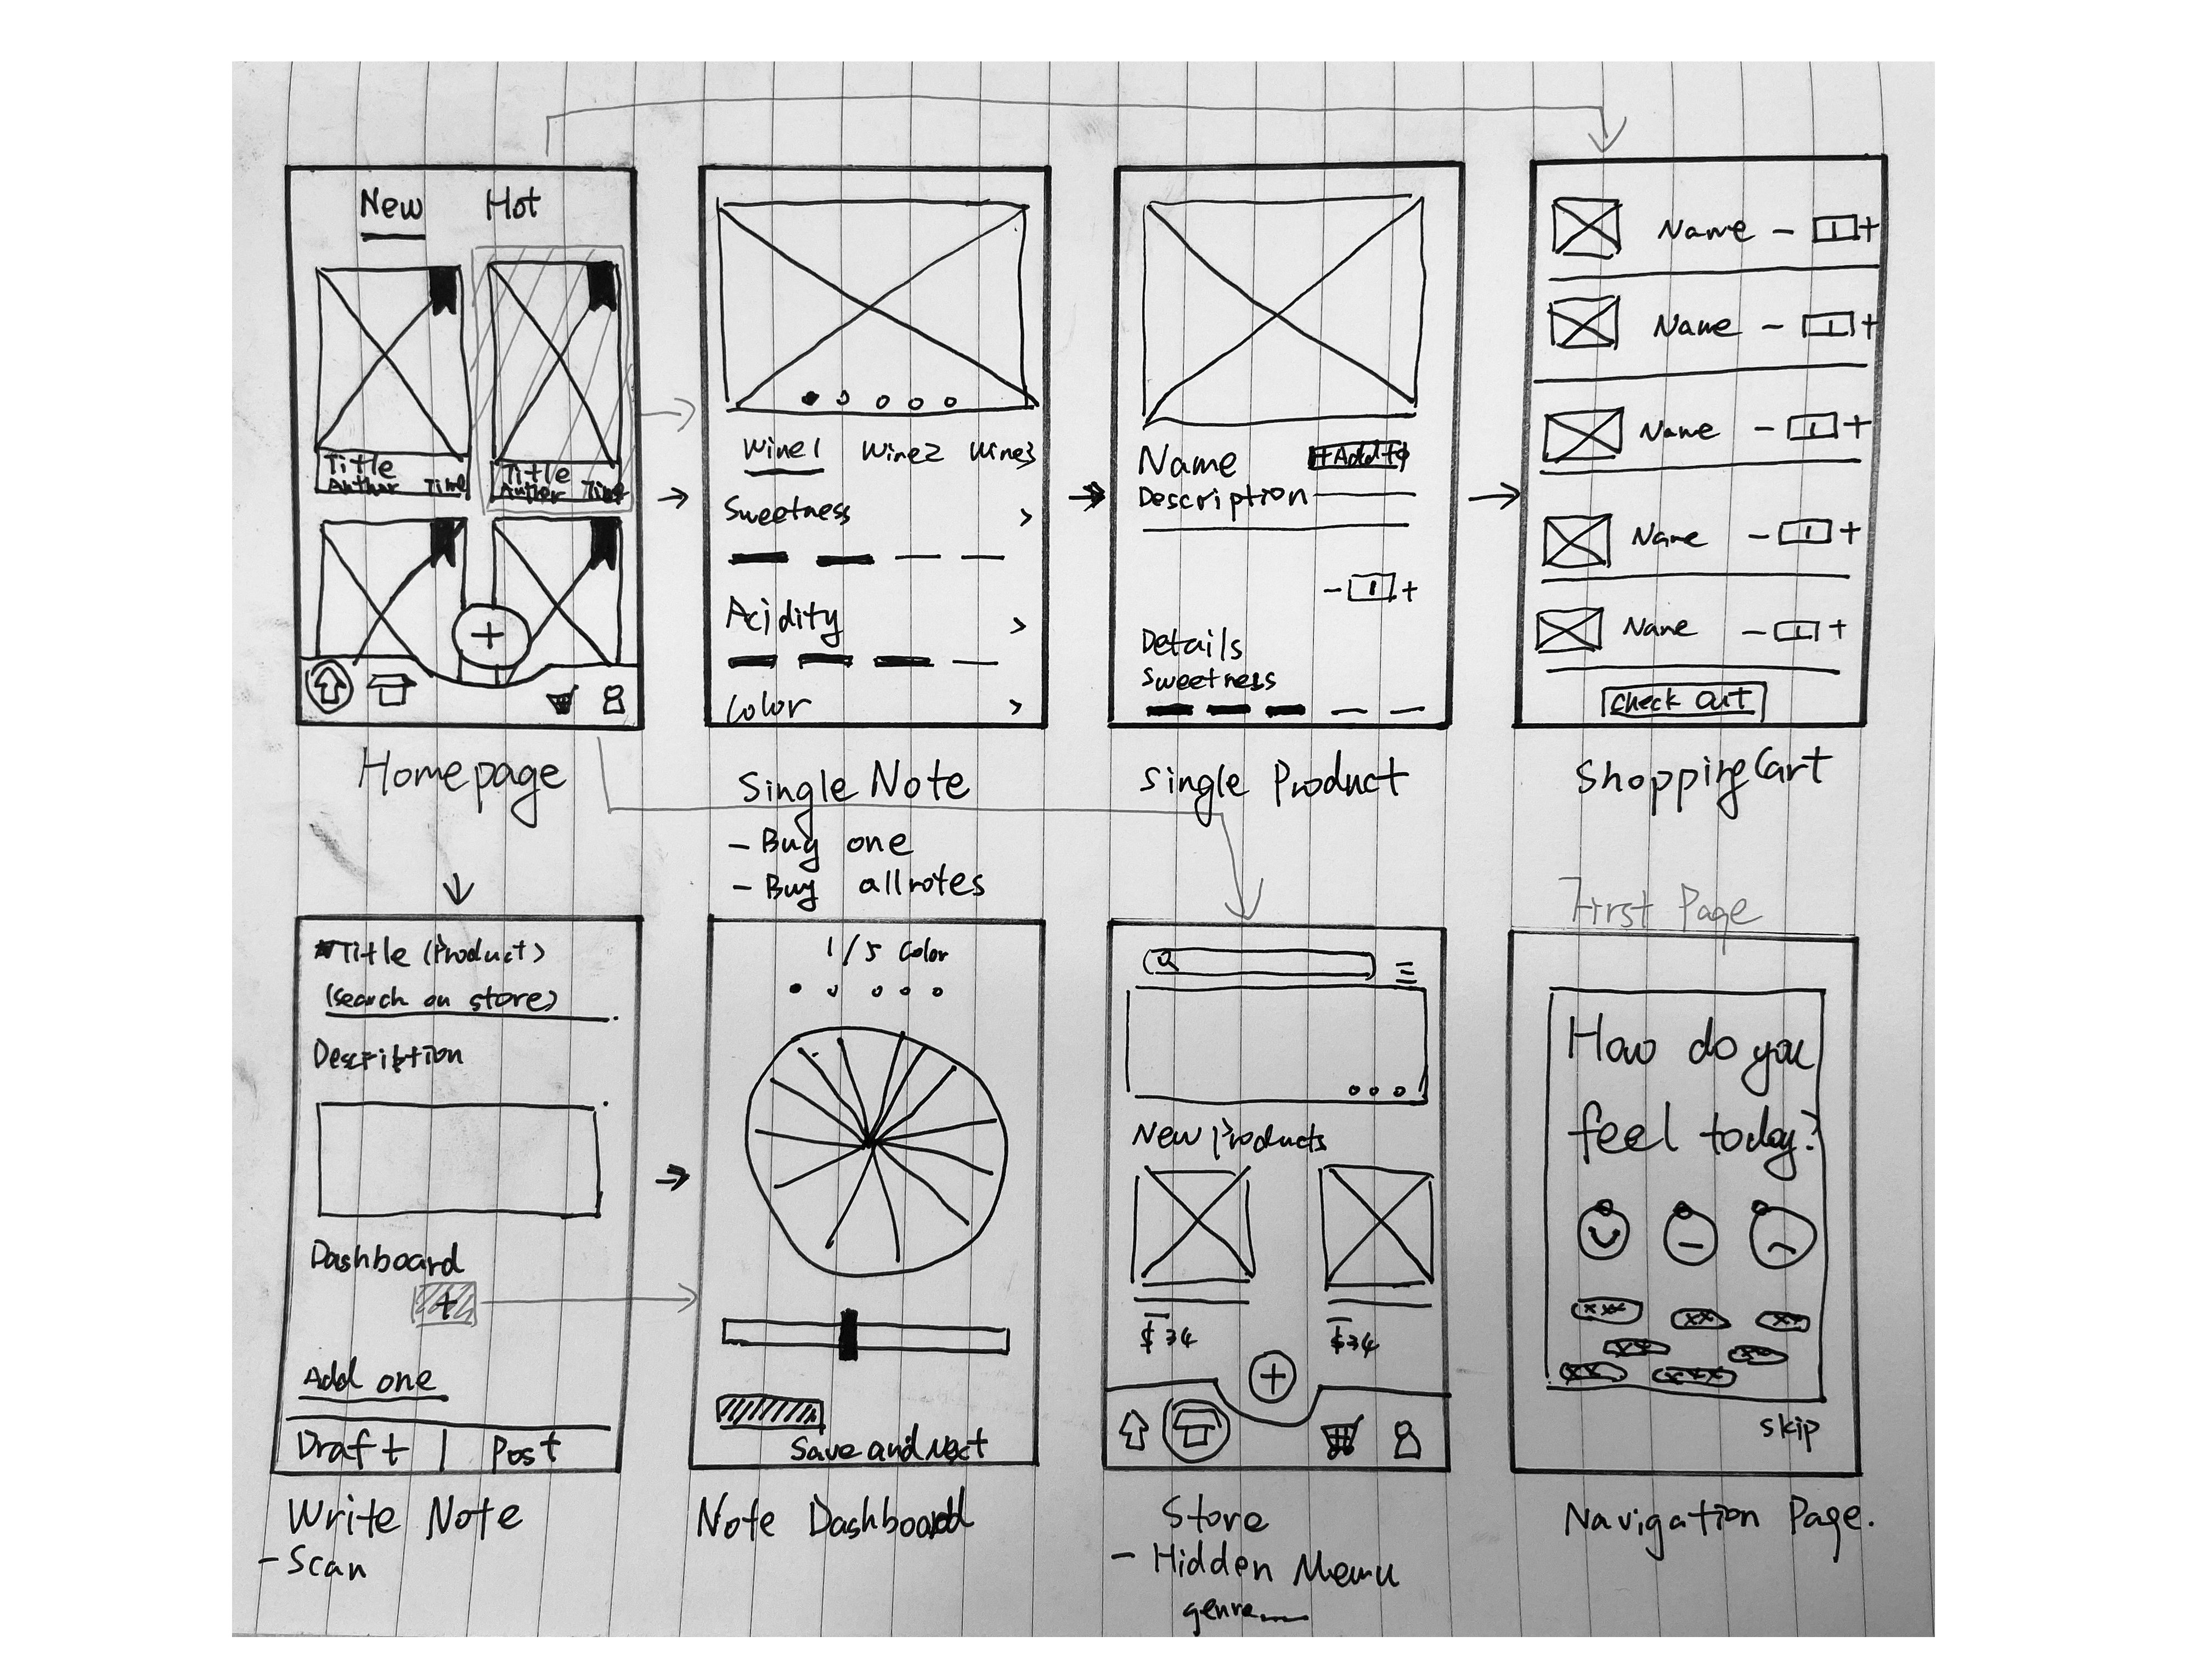 New Hot
Title
Author Time
Title
Author Time
+
Homepage
Wine1 Wine2 Wine3
Sweetness >
Acidity >
Color >
Single Note
- Buy one
- Buy all notes
Name + Add to
Description
- 1 +
Details
Sweetness
Single Product
Name - 1 +
Name - 1 +
Name - 1 +
Name - 1 +
Name - 1 +
Check Out
Shopping Cart
*Title (Product)
(Search on store)
Description
Dashboard
+
Add one
Draft | Post
Write Note
- Scan
1/5 Color
Save and Next
Note Dashboard
New Products
$34 $34
+
Store
- Hidden Menu
genre
First Page
How do you
feel today?
xxx xx xx
xx xx
xx xxx
skip
Navigation Page.